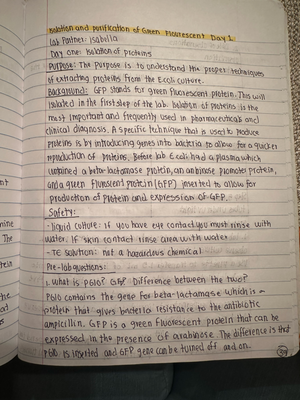 Isolation and purification of Green Fluorescent Day 1
Lab Partner: Isabella
Day one: Isolation of proteins
Purpose: The Purpose is to understand the proper techniques
of extracting proteins from the E.coli culture.
Background: GFP stands for green fluorescent protein. This will
isolated in the first step of the lab. Isolation of proteins is the
most important and frequently used in pharmaceuticals and
clinical diagnosis. A specific technique that is used to produce
proteins is by introducing genes into bacteria to allow for a quicker
reproduction of proteins. Before lab E.coli had a plasma which
contained a beta-lactamase protein, an arabinose promoter protein,
and a green fluorescent protein (GFP) inserted to allow for
production of protein and expression of GFP.
Safety:
- liquid culture: if you have eye contact you must rinse with
water. If skin contact rinse area with water
- TE solution: not a hazardous chemical
Pre-lab questions:
1. What is PGLO? GFP? Difference between the two?
PGLO contains the gene for beta-lactamase which is a
protein that gives bacteria resistance to the antibiotic
ampicillin. GFP is a green fluorescent protein that can be
expressed in the presence of arabinose. The difference is that
PGLO is inserted and GFP gene can be turned off and on.
nt
mine
The
tein